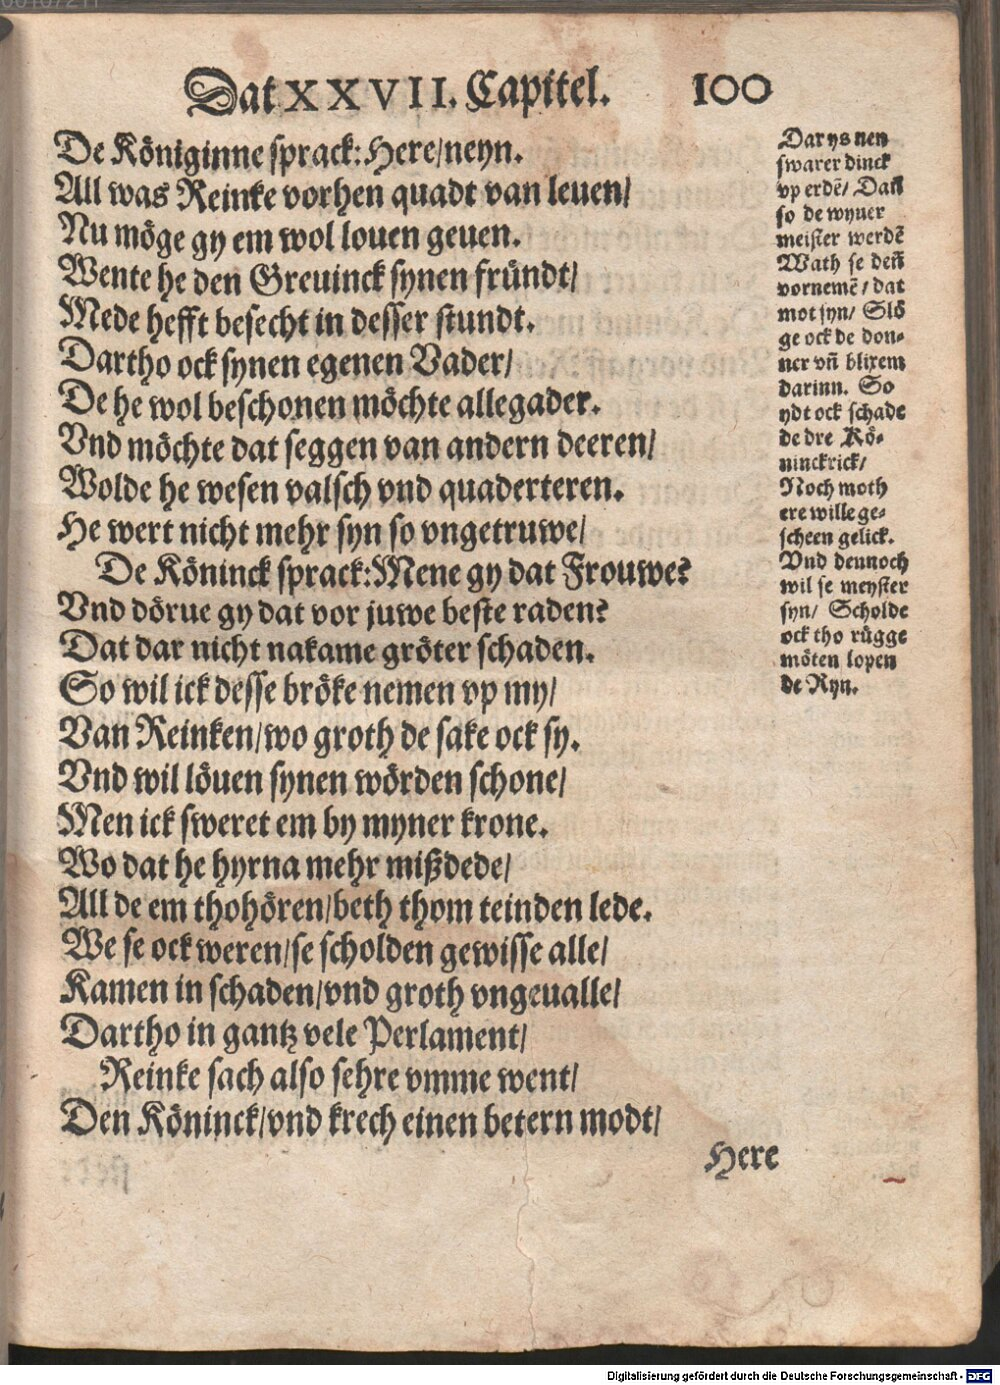 Dat XXVII. Capitel. 100
De Königinne sprack: Here/neyn.
All was Reinke vorhen quadt van leuen/
Nu möge gy em wol louen geuen.
Wente he den Greuinck synen fründt/
Mede hefft besecht in desser stundt.
Dartho ock synen egenen Vader/
De he wol beschonen möchte allegader.
Vnd möchte dat seggen van andern deeren/
Wolde he wesen valsch vnd quaderteren.
He wert nicht mehr syn so vngetruwe/
De Köninck sprack: Mene gy dat Frouwe?
Vnd dörue gy dat vor juwe beste raden?
Dat dar nicht nakame gröter schaden.
So wil ick desse bröke nemen vp my/
Van Reinken/wo groth de sake ock sy.
Vnd wil löuen synen wörden schone/
Men ick sweret em by myner krone.
Wo dat he hyrna mehr mißdede/
All de em thohören/beth thom teinden lede.
We se ock weren/se scholden gewisse alle/
Kamen in schaden/vnd groth vngeualle/
Dartho in gantz vele Perlament/
Reinke sach also sehre vmme went/
Den Köninck/vnd krech einen betern modt/
Here
Dar ys nen
swarer dinck
vp erdē/ Dañ
so de wyuer
meister werdē
Wath se deñ
vornemē/ dat
mot syn/ Slö
ge ock de don-
ner vñ blixem
darinn. So
ydt ock schade
de dre Kö-
ninckrick/
Noch moth
ere wille ge-
scheen gelick.
Vnd dennoch
wil se meyster
syn/ Scholde
ock tho rügge
möten lopen
de Ryn.
Digitalisierung gefördert durch die Deutsche Forschungsgemeinschaft - DFG